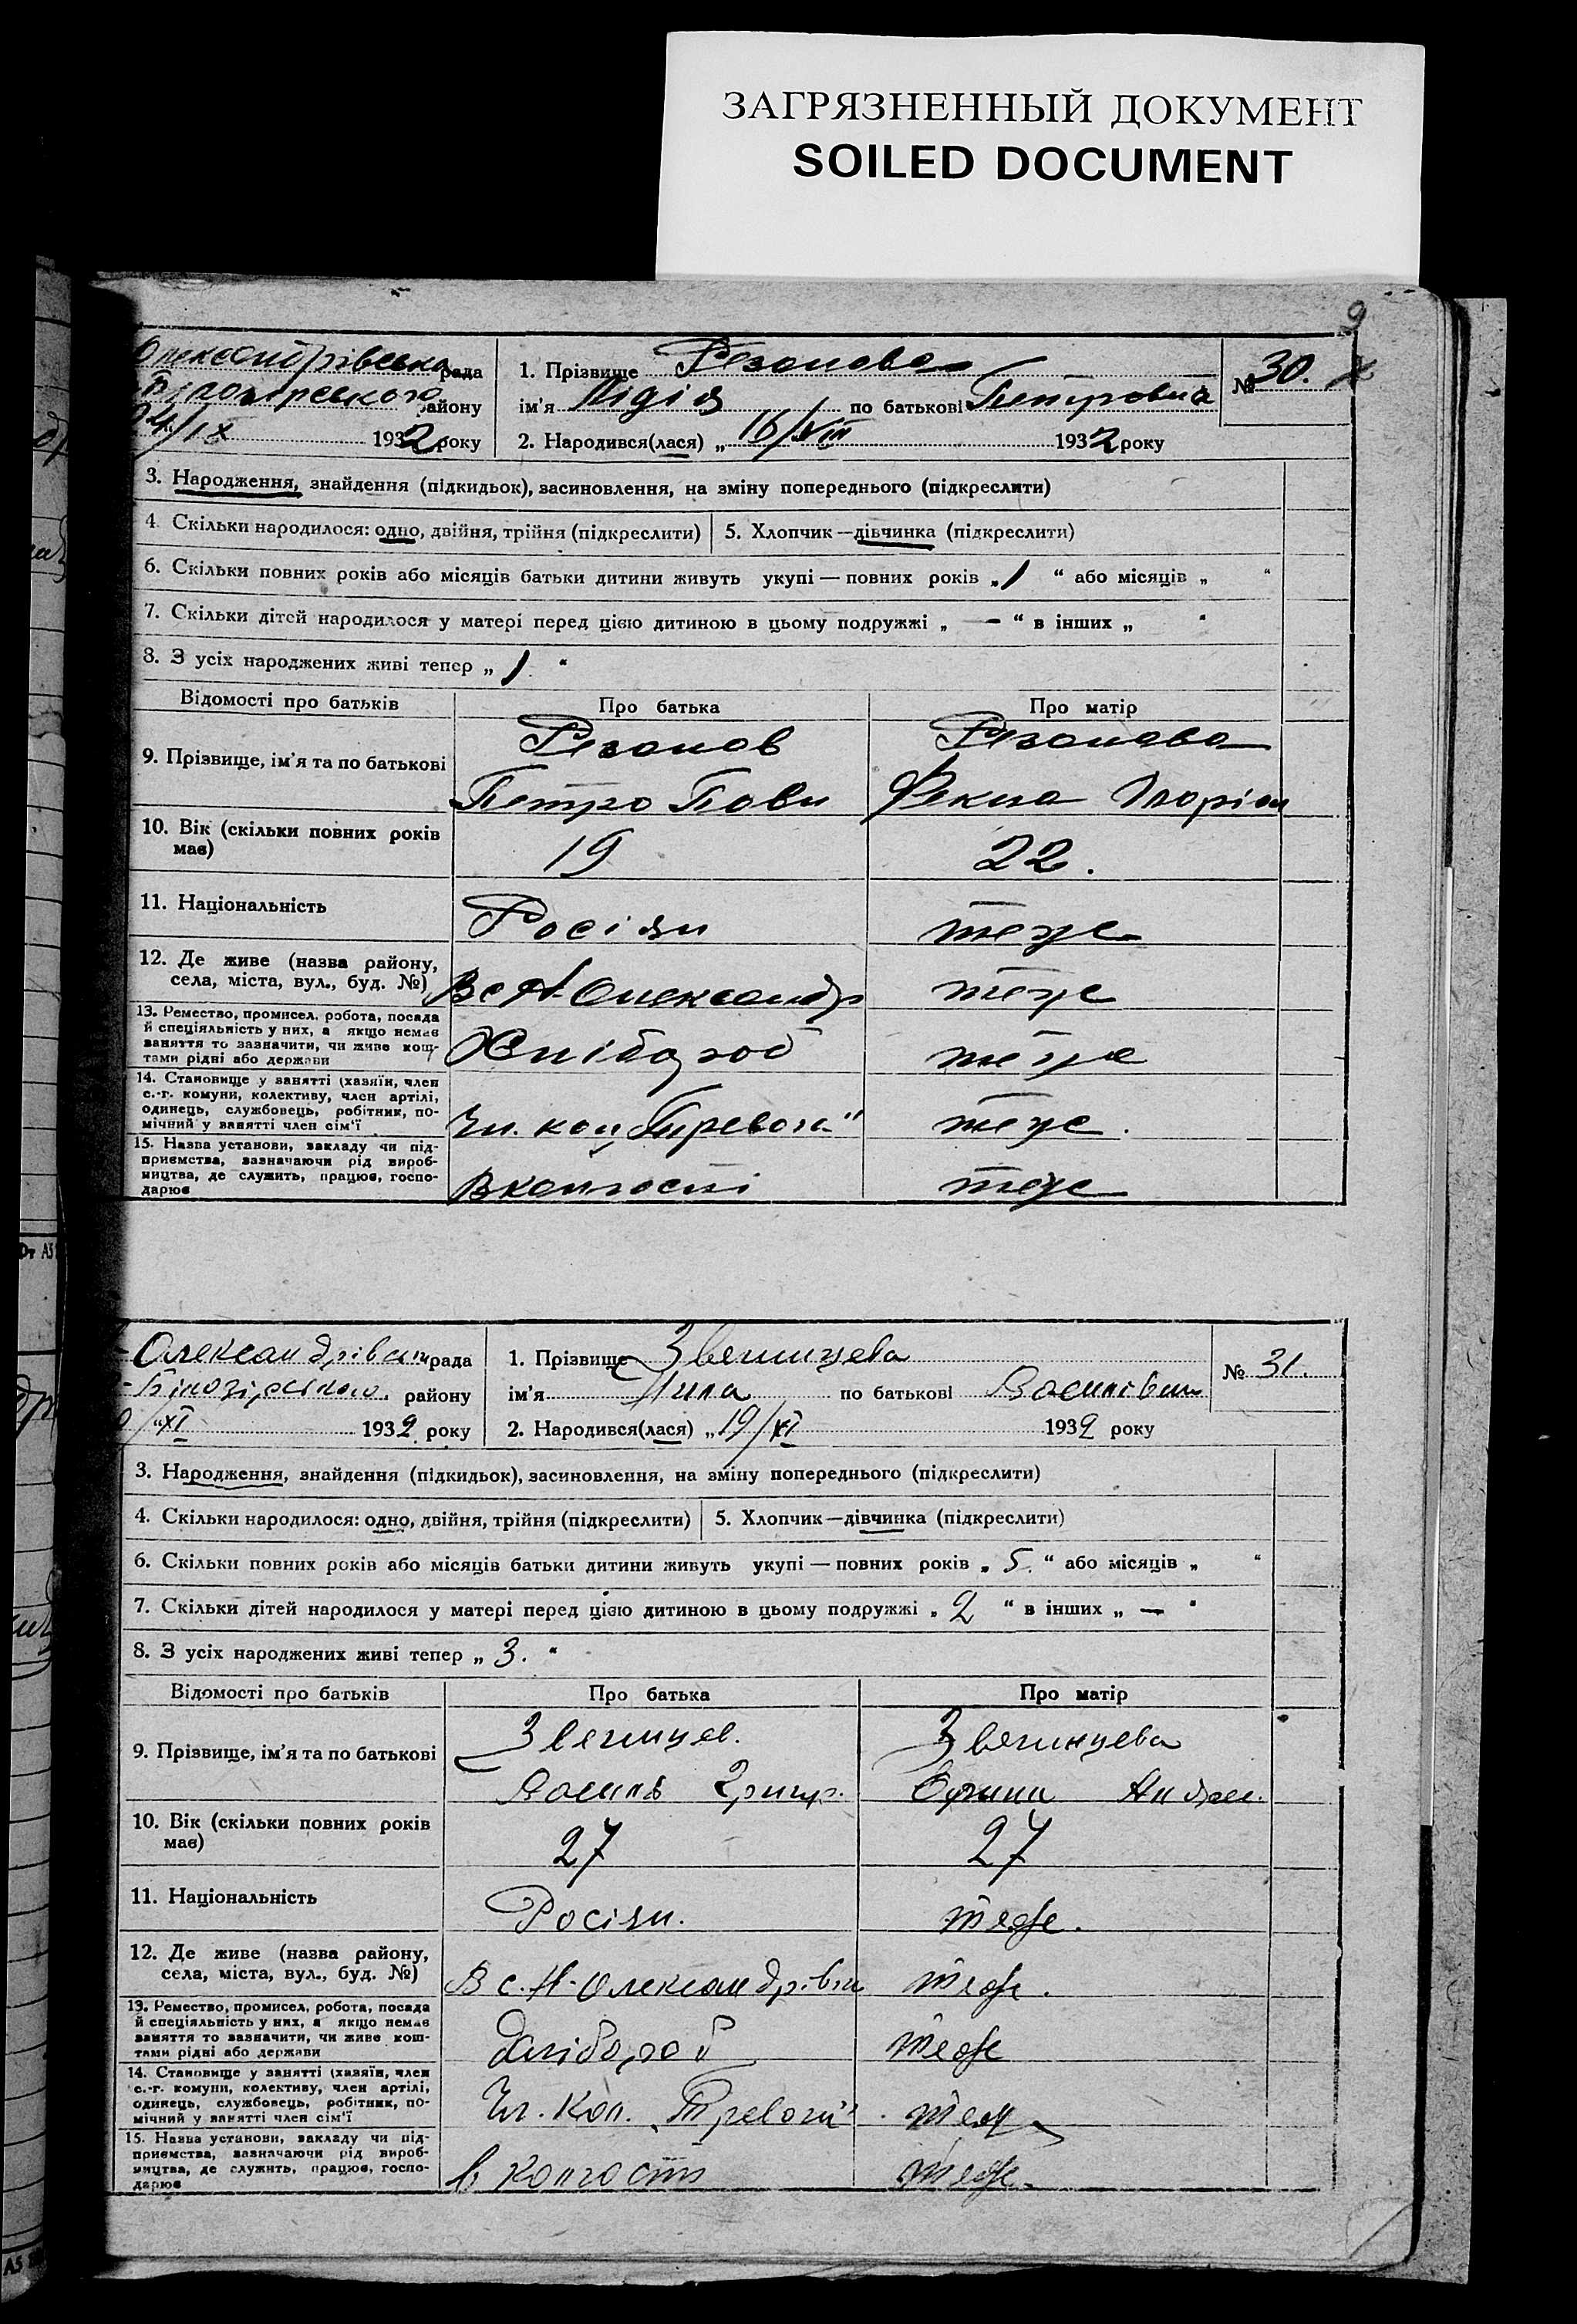 ЗАГРЯЗНЕННЫЙ ДОКУМЕНТ
SOILED DOCUMENT
9
Олександрівська рада
Білозірського району
24/IX 1932 року
1. Прізвище Резанова
ім'я Лідія по батькові Петровна
2. Народився(лася) „ 16/VIII 1932 року
№ 30.
3. Народження, знайдення (підкидьок), засиновлення, на зміну попереднього (підкреслити)
4. Скільки народилося: одно, двійня, трійня (підкреслити) 5. Хлопчик—дівчинка (підкреслити)
6. Скільки повних років або місяців батьки дитини живуть укупі — повних років „ 1 “ або місяців „ “
7. Скільки дітей народилося у матері перед цією дитиною в цьому подружжі „ — “ в інших „ “
8. З усіх народжених живі тепер „ 1 “
Відомості про батьків Про батька Про матір
9. Прізвище, ім'я та по батькові
Резанов Резанова
Петро Павл Фекла
10. Вік (скільки повних років має) 19 22.
11. Національність Росіян теже
12. Де живе (назва району, села, міста, вул., буд. №) В с Н-Олександр теже
13. Ремество, промисел, робота, посада й спеціяльність у них, а якщо немає заняття то зазначити, чи живе коштами рідні або держави Хлібороб теже
14. Становище у занятті (хазяїн, член с.-г. комуни, колективу, член артілі, одинець, службовець, робітник, помічний у занятті член сім'ї Чл. кол „Тревога“ теже.
15. Назва установи, закладу чи підприємства, зазначаючи рід виробництва, де служить, працює, господарює В колгоспі теже
Олександрівськ рада
Білозірського району
XI 1932 року
1. Прізвище Звегинцева
ім'я Нина по батькові Василівн
2. Народився(лася) „ 19/XI 1932 року
№ 31.
3. Народження, знайдення (підкидьок), засиновлення, на зміну попереднього (підкреслити)
4. Скільки народилося: одно, двійня, трійня (підкреслити) 5. Хлопчик—дівчинка (підкреслити)
6. Скільки повних років або місяців батьки дитини живуть укупі — повних років „ 5. “ або місяців „ “
7. Скільки дітей народилося у матері перед цією дитиною в цьому подружжі „ 2 “ в інших „ — “
8. З усіх народжених живі тепер „ 3. “
Відомості про батьків Про батька Про матір
9. Прізвище, ім'я та по батькові
Звегинцев. Звегинцева
Василь Григр. Андре.
10. Вік (скільки повних років має) 27 27
11. Національність Росіян. теже.
12. Де живе (назва району, села, міста, вул., буд. №) В с. Н-Олександрівки теже.
13. Ремество, промисел, робота, посада й спеціяльність у них, а якщо немає заняття то зазначити, чи живе коштами рідні або держави Хлібороб теже
14. Становище у занятті (хазяїн, член с.-г. комуни, колективу, член артілі, одинець, службовець, робітник, помічний у занятті член сім'ї Чл. Кол. „Тревоги“ теж
15. Назва установи, закладу чи підприємства, зазначаючи рід виробництва, де служить, працює, господарює в колгоспі теже.